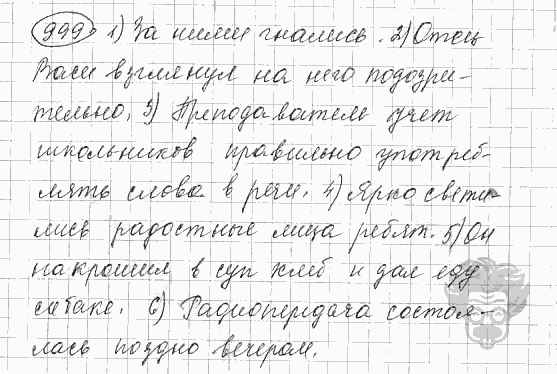 999. 1) За ними гнались. 2) Отец
Васи взглянул на него подозри-
тельно. 3) Преподаватель учет
школьников правильно употреб-
лять слова в речи. 4) Ярко свети-
лись радостные лица ребят. 5) Он
накрошил в суп хлеб и дал еду
собаке. 6) Радиопередача состоя-
лась поздно вечером.